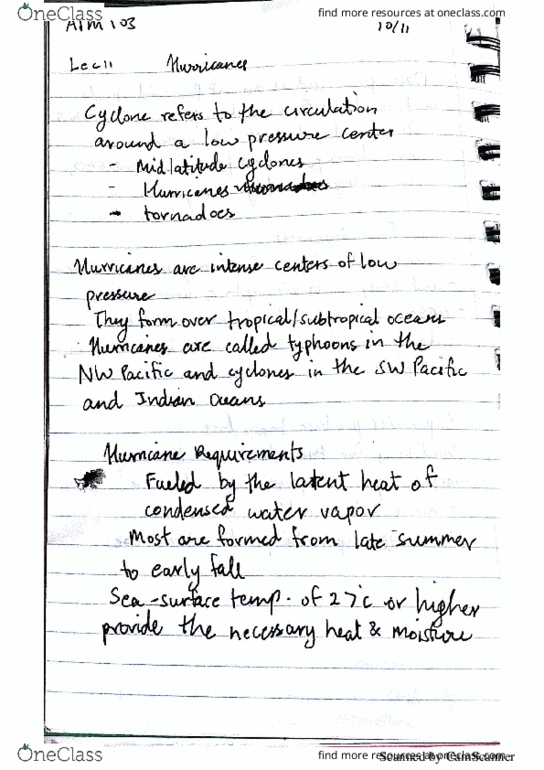 OneClass
find more resources at oneclass.com
ATM 103
10/11
Lec 11 Hurricanes
Cyclone refers to the circulation
around a low pressure center
- Midlatitude cyclones
- Hurricanes
- tornadoes
Hurricanes are intense centers of low
pressure
They form over tropical/subtropical oceans
Hurricanes are called typhoons in the
NW Pacific and cyclones in the SW Pacific
and Indian Oceans
Hurricane Requirements
Fueled by the latent heat of
condensed water vapor
Most are formed from late summer
to early fall
Sea-surface temp. of 27°c or higher
provide the necessary heat & moisture
OneClass
find more resources at oneclass.com
Scanned by CamScanner